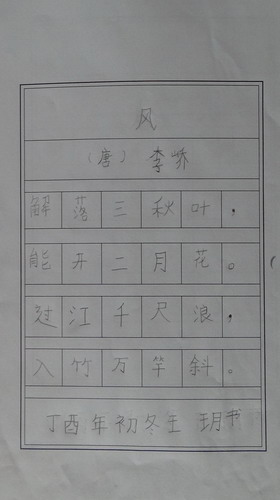 风
（唐） 李峤
解落三秋叶，
能开二月花。
过江千尺浪，
入竹万竿斜。
丁酉年初冬王玥书